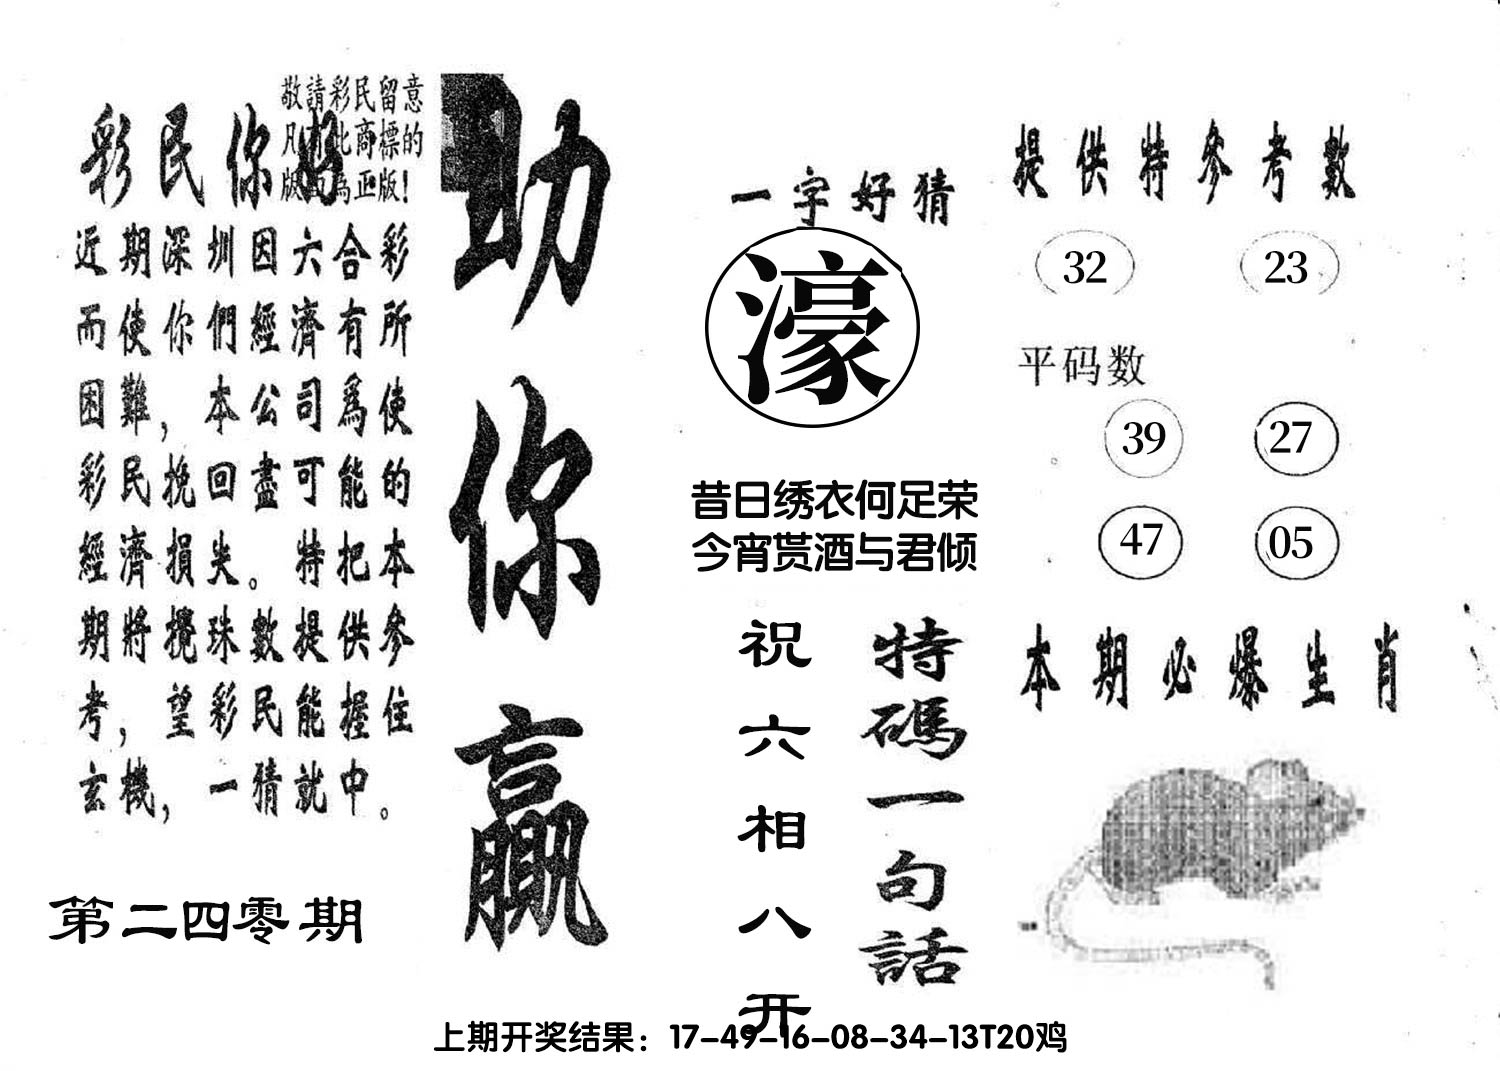 敬請彩民留意
凡有此商標的
版面為正版！
彩民你好
近期深圳因六合彩
而使你們經濟有所
困難，本公司爲使
彩民挽回盡可能的
經濟損失。特把本
期將攪珠數提供參
考，望彩民能握住
玄機，一猜就中。
第二四零期
助你贏
一字好猜
濠
昔日绣衣何足荣
今宵贳酒与君倾
特碼一句話
祝六相八开
提供特參考數
32 23
平码数
39 27
47 05
本期必爆生肖
上期开奖结果：17-49-16-08-34-13T20鸡